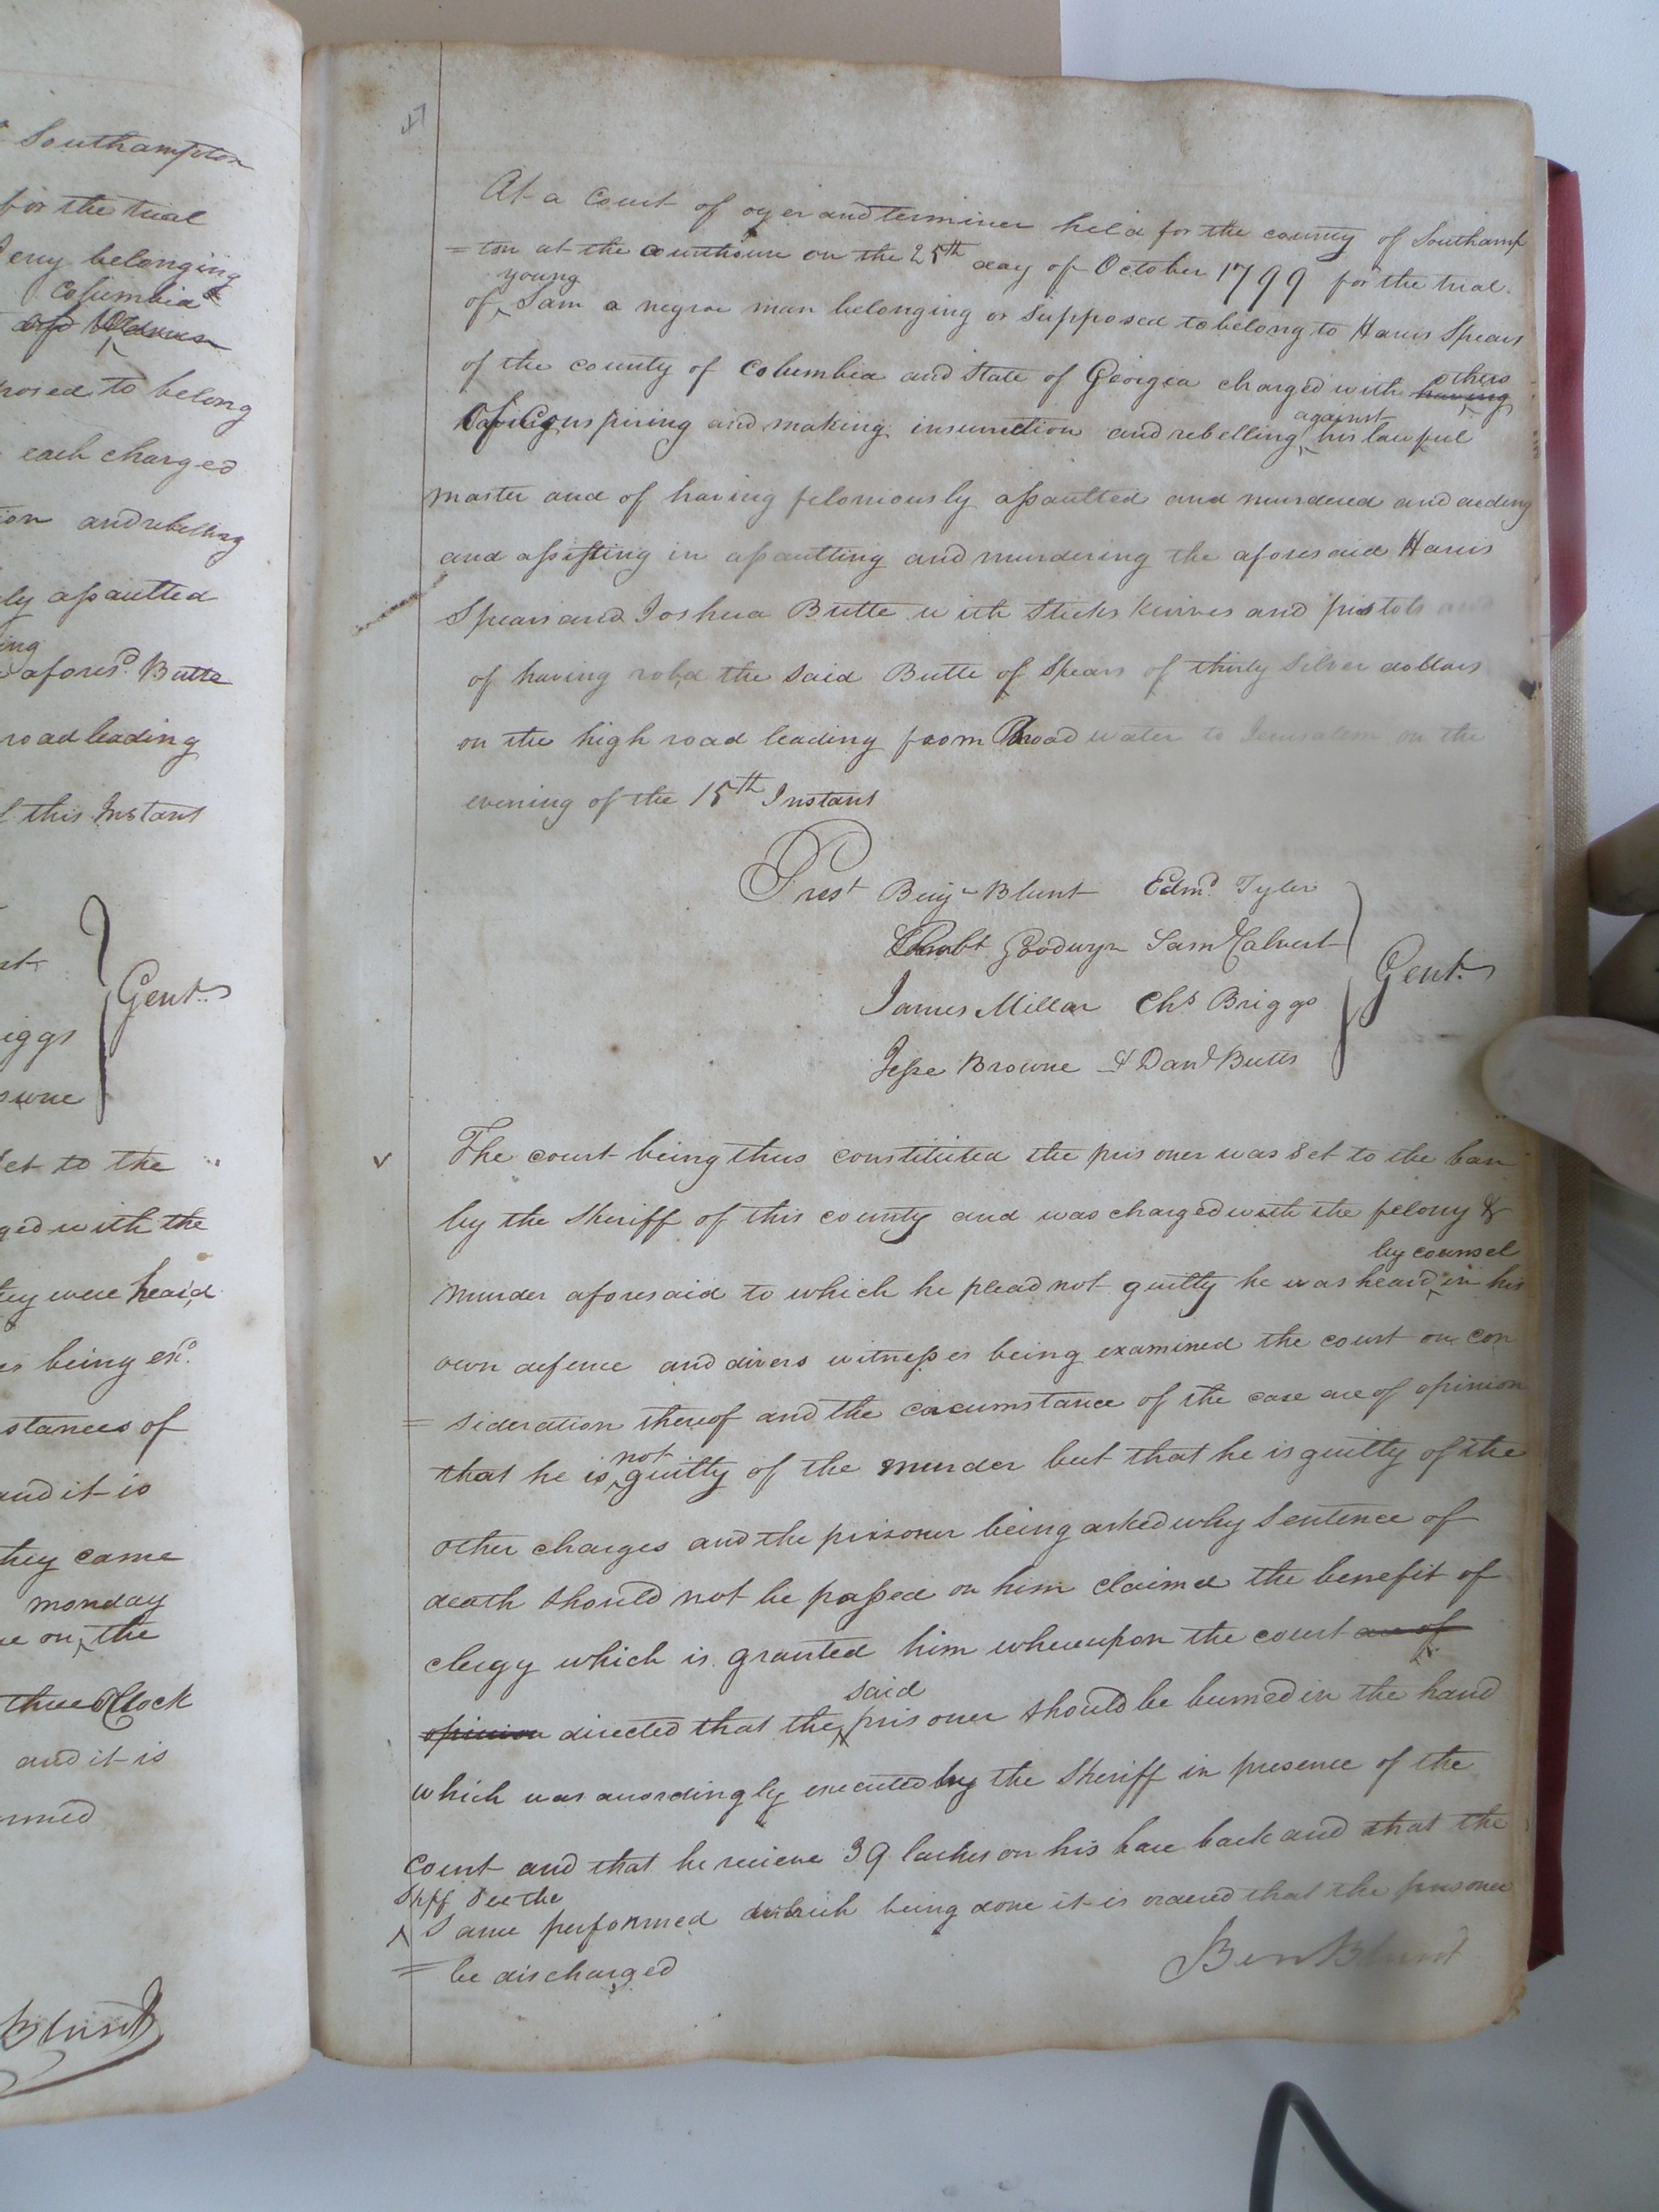 Southampton
for the trial
Jery belonging
Columbia &
posed to belong
each charged
ion and rebelling
ly assaulted
ing
aforesd. Butte
road leading
this Instant
Gent.
iggs
owne
et to the
ged with the
they were heard
es being exd.
stances of
and it is
they came
monday
on the
three OClock
and it is
ormed
Blunt
47
At a Court of oyer and terminer held for the county of Southamp
= ton at the courthouse on the 25th day of October 1799 for the trial
young
of Sam a negroe man belonging or supposed to belong to Harris Spears
others
of the county of Columbia and State of Georgia charged with having
against
of Conspiring and making insurrection and rebelling his lawful
master and of having feloniously assaulted and murdered and aiding
and assisting in assaulting and murdering the aforesaid Harris
Spears and Joshua Butte with Sticks knives and pistols and
of having robd the said Butte & Spears of thirty silver dollars
on the high road leading from Broad water to Jerusalem on the
evening of the 15th Instant
Prest Benja Blunt Edmd. Tyler
Goodwyn Saml Calvert
Gent.
James Millar Chs Briggs
Jesse Browne & Danl Butts
The court being thus constituted the prisoner was set to the bar
by the Sheriff of this county and was charged with the felony &
by counsel
murder aforesaid to which he plead not guilty he was heard in his
own defence and divers witnesses being examined the court on con
= sideration thereof and the circumstance of the case are of opinion
not
that he is guilty of the murder but that he is guilty of the
other charges and the prisoner being asked why Sentence of
death should not be passed on him claimed the benefit of
clergy which is granted him whereupon the court are of
said
opinion directed that the prisoner should be burned in the hand
which was accordingly executed by the Sheriff in presence of the
Court and that he recieve 39 lashes on his bare back and that the
Shff See the
Same performed which being done it is ordered that the prisoner
= be discharged
Ben Blunt